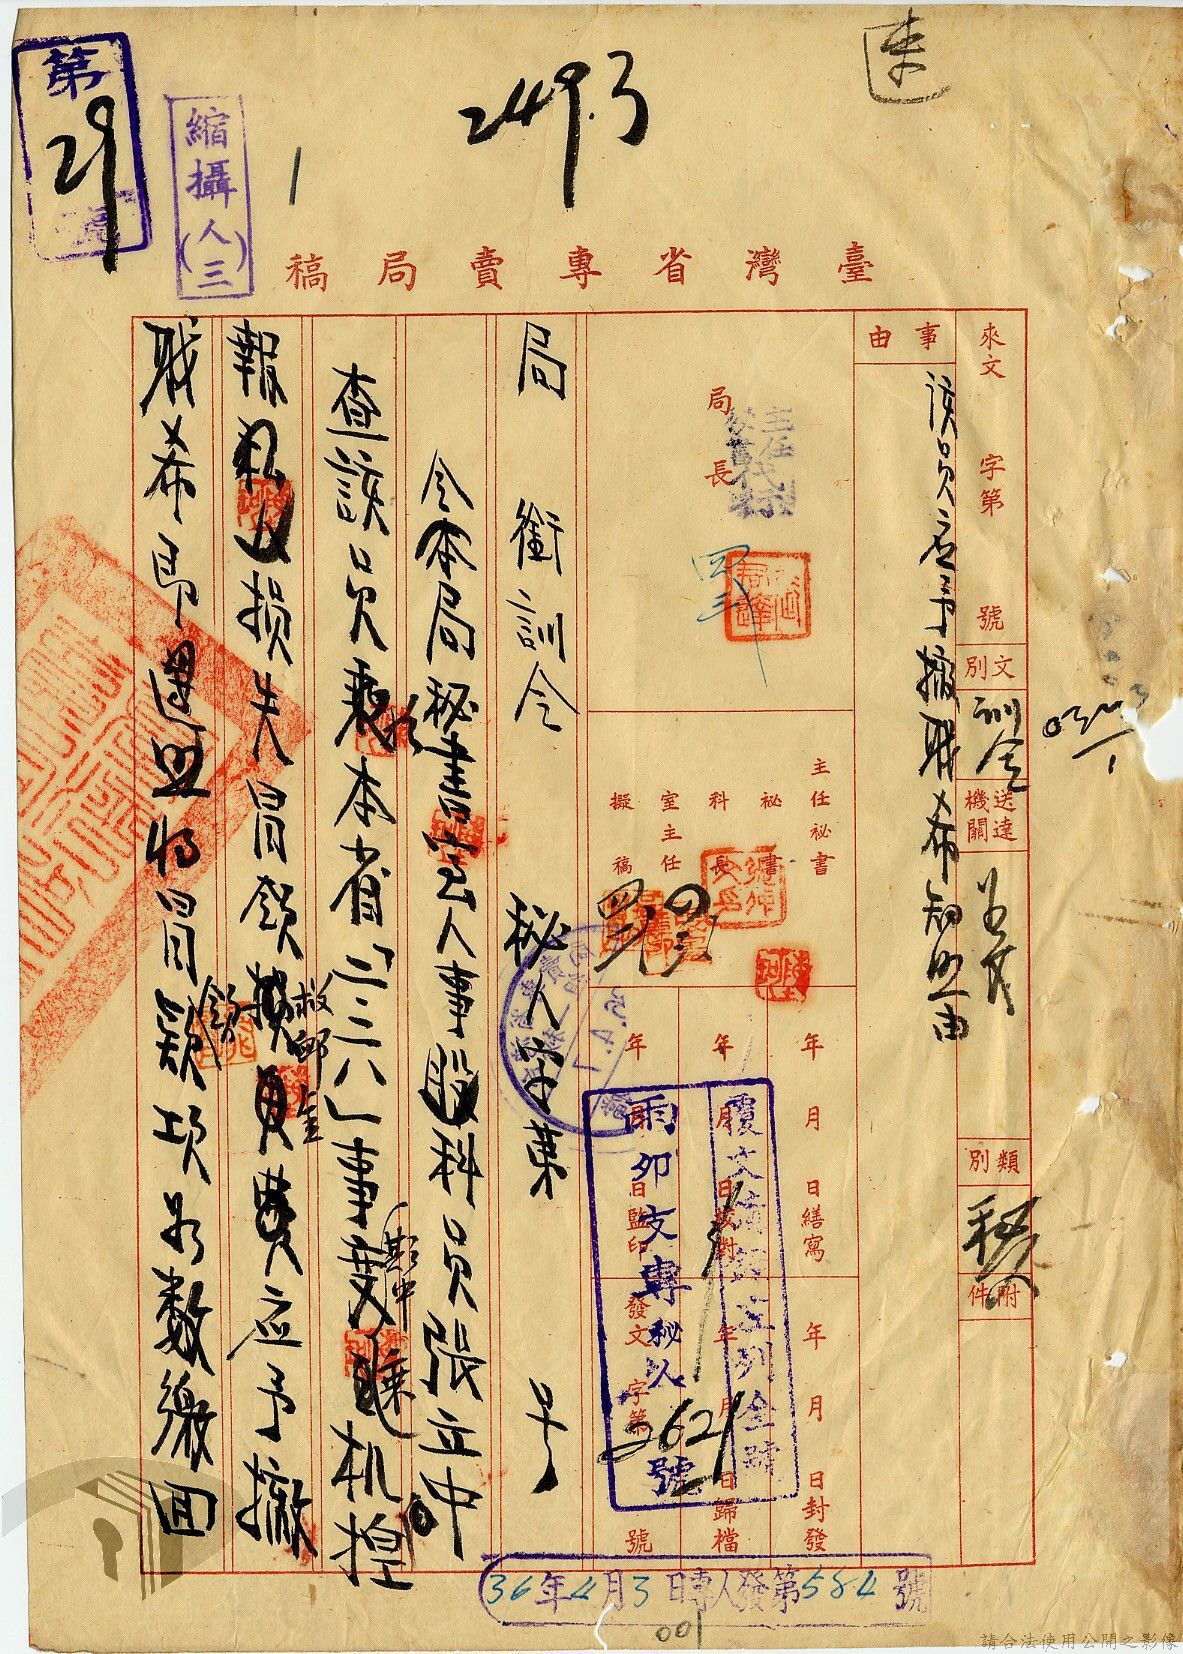 速
249.3
第29號
縮攝人(三)
臺灣省專賣局稿
來文 字第 號
文別 訓令
送達機關
類別
附件
事由 該員應予撤職希知照由
局長
主任秘書
秘書
科長
室主任
擬稿
年 月 日繕寫
年 月 日校對
年 月 日監印
年 月 日封發
年 月 日歸檔
發文 字第 號
覆文請填左列全號
雨卯支專秘人 2621 號
局銜訓令 秘人字第 號
令本局秘書室人事股科員張立中
查該員於本省「二二八」事變期中乘机捏
報損失冒領救卹金應予撤
職希即遵照將冒領款項如數繳回
36年4月3日專人發第584號
001
請合法使用公開之影像